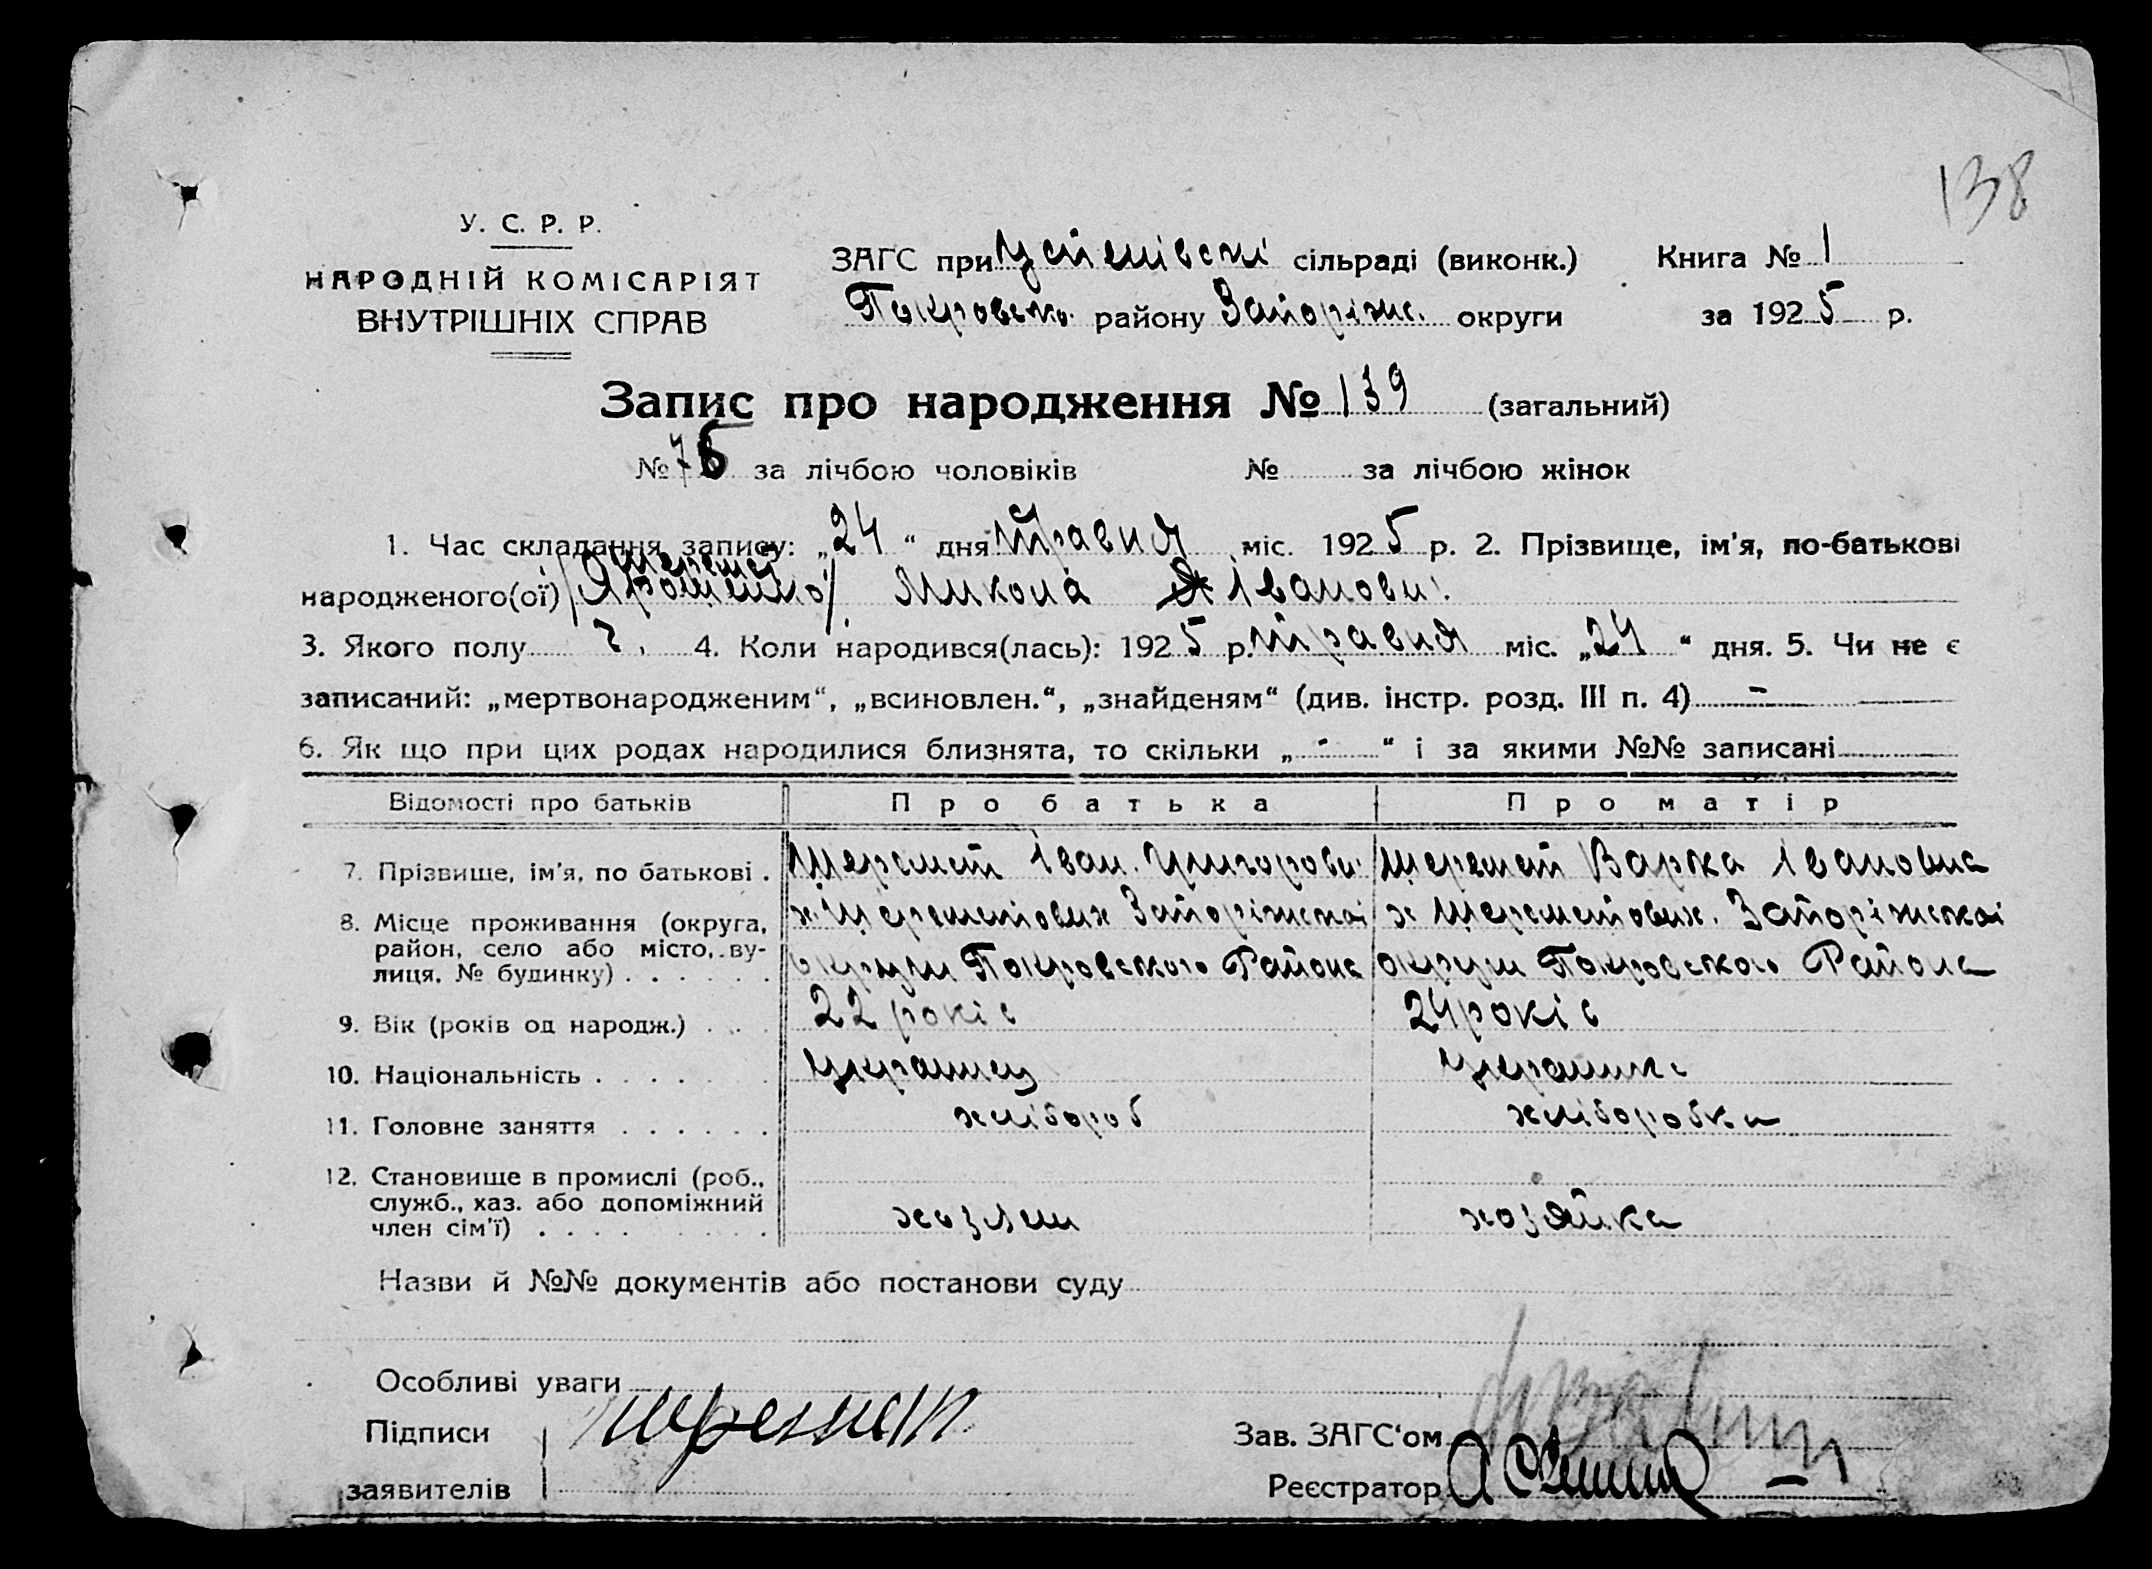 138
У. С. Р. Р.
НАРОДНІЙ КОМІСАРІЯТ
ВНУТРІШНІХ СПРАВ
ЗАГС при сільраді (виконк.) Книга № 1
Покровськ. району Запоріжс. округи за 1925 р.
Запис про народження № 139 (загальний)
№ 76 за лічбою чоловіків № за лічбою жінок
1. Час складання запису: „24“ дня травня міс. 1925 р. 2. Прізвище, ім'я, по-батькові
Шеремет
народженого(ої) Микола Іванови.
3. Якого полу ч. 4. Коли народився(лась): 1925 р. травня міс. „24“ дня. 5. Чи не є
записаний: „мертвонародженим“, „всиновлен.“, „знайденям“ (див. інстр. розд. III п. 4) -
6. Як що при цих родах народилися близнята, то скільки „-“ і за якими №№ записані
Відомості про батьків Про батька Про матір
7. Прізвище, ім'я, по батькові . Шеремет Іван Григорови Шеремет Варка Івановна
8. Місце проживання (округа, х. Шереметових Запоріжскоі х Шереметових. Запоріжскоі
район, село або місто, ву- округи Покровського Района округи Покровського Района
лиця, № будинку) . . . . . .
9. Вік (років од народж.) . . . 22 років 24 років
10. Національність . . . . . . украинец украинка
11. Головне заняття . . . . . . хлібороб хліборобка
12. Становище в промислі (роб.,
служб., хаз. або допоміжний хозяин хозяйка
член сім'ї) . . . . . . . .
Назви й №№ документів або постанови суду
Особливі уваги
Підписи Шеремет Зав. ЗАГС'ом
заявителів Реєстратор